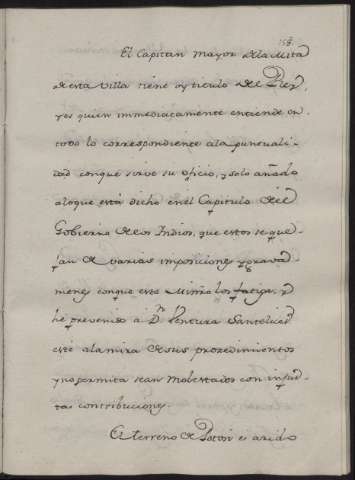 El Capitan mayor de la Mita
de esta Villa tiene oy titulo del Rey,
y es quien immediatamente entiende en
todo lo correspondiente ala puntuali-
dad conque sirve su oficio, y solo añado
aloque está dicho en el Capitulo del
Gobierno de los Indios, que estos se que-
jan de varias imposiciones y grava-
menes conque este los fatiga, y
he prevenido á Dn. Ventura Santelices
esté ala mira de sus procedimientos
y no permita sean molestados con injus-
tas contribuciones.
El terreno de Potosi es arido